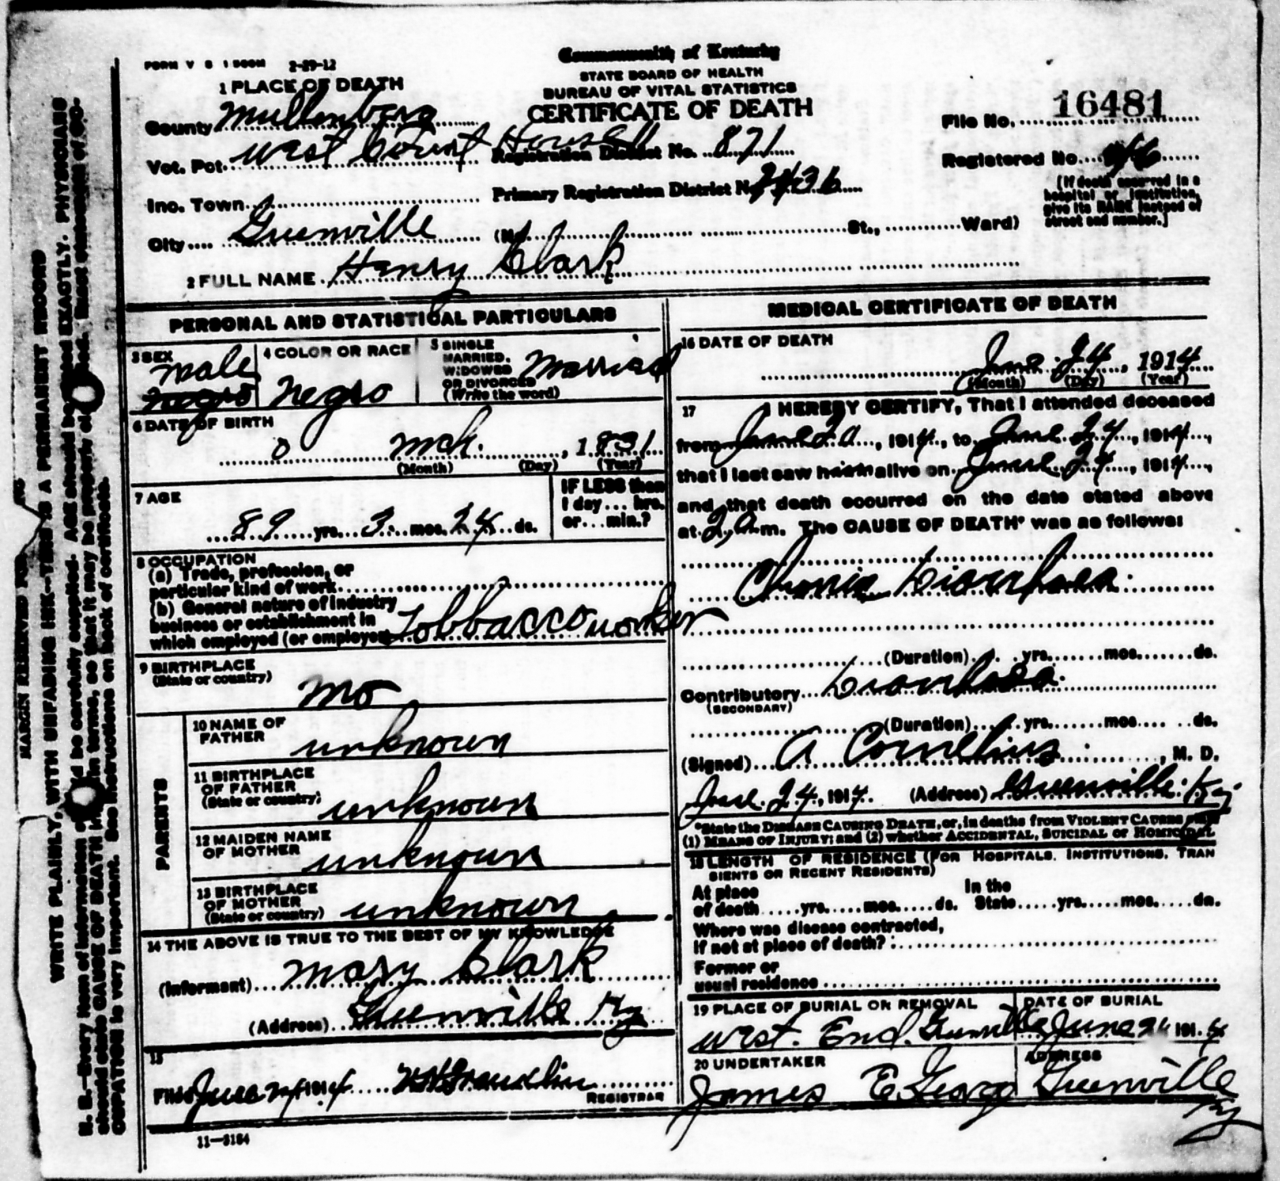 Commonwealth of Kentucky
FORM V S 1 500M 2-29-12
STATE BOARD OF HEALTH
BUREAU OF VITAL STATISTICS
CERTIFICATE OF DEATH
1 PLACE OF DEATH
County Mullenberg
File No. 16481
Vot. Pct. West Court House Registration District No. 871
Registered No.
Inc. Town Primary Registration District No. 2436
[If death occurred in a hospital or institution, give its NAME instead of street and number.]
City Greenville (No. St., Ward)
2 FULL NAME Henry Clark
PERSONAL AND STATISTICAL PARTICULARS
3 SEX male negro
4 COLOR OR RACE negro
5 SINGLE MARRIED, WIDOWED OR DIVORCED (Write the word) Married
6 DATE OF BIRTH
0 Mch. , 1831
(Month) (Day) (Year)
7 AGE
89 yrs. 3 mos. 24 ds.
IF LESS than 1 day... hrs. or... min.?
8 OCCUPATION
(a) Trade, profession, or
particular kind of work
(b) General nature of industry
business or establishment in
which employed (or employer) Tobbacco worker
9 BIRTHPLACE
(State or country)
Mo
PARENTS
10 NAME OF FATHER unknown
11 BIRTHPLACE OF FATHER (State or country) unknown
12 MAIDEN NAME OF MOTHER unknown
13 BIRTHPLACE OF MOTHER (State or country) unknown
14 THE ABOVE IS TRUE TO THE BEST OF MY KNOWLEDGE
(Informant) Mary Clark
(Address) Greenville Ky
15
Filed June 1914 Franklin
REGISTRAR
11-5184
MEDICAL CERTIFICATE OF DEATH
16 DATE OF DEATH
June 24, 1914
(Month) (Day) (Year)
17 I HEREBY CERTIFY, That I attended deceased
from June 20, 1914, to June 24, 1914,
that I last saw alive on June 24, 1914,
and that death occurred on the date stated above
at 2 a m. The CAUSE OF DEATH* was as follows:
Chronic Diarrhoea
(Duration) yrs. mos. ds.
Contributory Diarrhoea
(SECONDARY)
(Duration) yrs. mos. ds.
(Signed) A Cornelius, M. D.
June 24, 1914. (Address) Greenville Ky
*State the DISEASE CAUSING DEATH, or, in deaths from VIOLENT CAUSES
(1) MEANS OF INJURY; and (2) whether ACCIDENTAL, SUICIDAL or HOMICIDAL
18 LENGTH OF RESIDENCE (FOR HOSPITALS, INSTITUTIONS, TRAN
SIENTS OR RECENT RESIDENTS)
At place of death yrs. mos. ds. In the State yrs. mos. ds.
Where was disease contracted,
if not at place of death?
Former or
usual residence
19 PLACE OF BURIAL OR REMOVAL DATE OF BURIAL
West End Greenville June 1914
20 UNDERTAKER ADDRESS
James E Greenville Ky
MARGIN RESERVED FOR
WRITE PLAINLY, WITH UNFADING INK—THIS IS A PERMANENT RECORD
N. B.—Every item of information should be carefully supplied. Age should be stated EXACTLY. PHYSICIANS
should state CAUSE OF DEATH in terms, so that it may be properly classified. Exact statement of OC-
CUPATION is very important. See instructions on back of certificate.